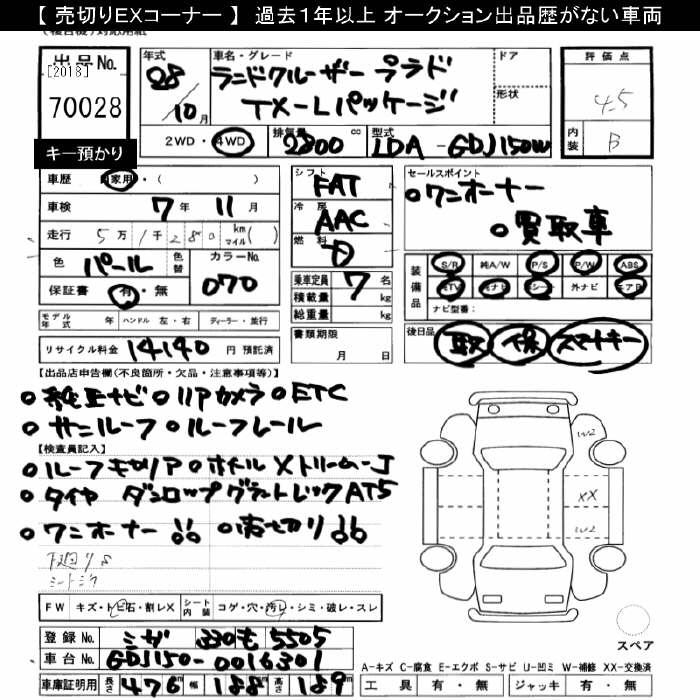 【 売切りEXコーナー 】 過去１年以上 オークション出品歴がない車両
出品No.
[2018]
70028
キー預かり
年式
28
10月
車名・グレード
ランドクルーザー プラド
TX-Lパッケージ
ドア
形状
評価点
4.5
内装
B
2WD・4WD
排気量
2800 cc
型式
LDA-GDJ150W
車歴
自家用・( )
車検
7年 11月
走行
5万1千280km マイル( )
色
パール
色替
カラーNo.
070
保証書
有・無
シフト
FAT
冷房
AAC
燃料
D
乗車定員 7名
積載量 kg
総重量 kg
セールスポイント
○ワンオーナー
○買取車
装備品
S/R 純A/W P/S P/W ABS
純TV 純ナビ 革シート 外ナビ エアB
ナビ型番:
モデル年式 年 ハンドル 左・右 ディーラー・並行
リサイクル料金 14140 円 預託済
書類期限
月 日
後日品
取 保 スマートキー
【出品店申告欄(不良箇所・欠品・注意事項等)】
○純正ナビ ○リアカメラ ○ETC
○サンルーフ ○ルーフレール
【検査員記入】
○ルーフキャリア ○ホイル Xトリーム-J
○タイヤ ダンロップグラントレックAT5
○ワンオーナー!! ○売切り!!
下廻りS
シートシワ
W2
XX
W2
FW キズ・トビ石・割レX
シート内装 コゲ・穴・汚レ・シミ・破レ・スレ
登録No. ミザ 330 も 5505
車台No. GDJ150-0016301
車庫証明用 長さ 476 幅 188 高さ 189
スペア
A-キズ C-腐食 E-エクボ S-サビ U-凹ミ W-補修 XX-交換済
工具 有・無 ジャッキ 有・無